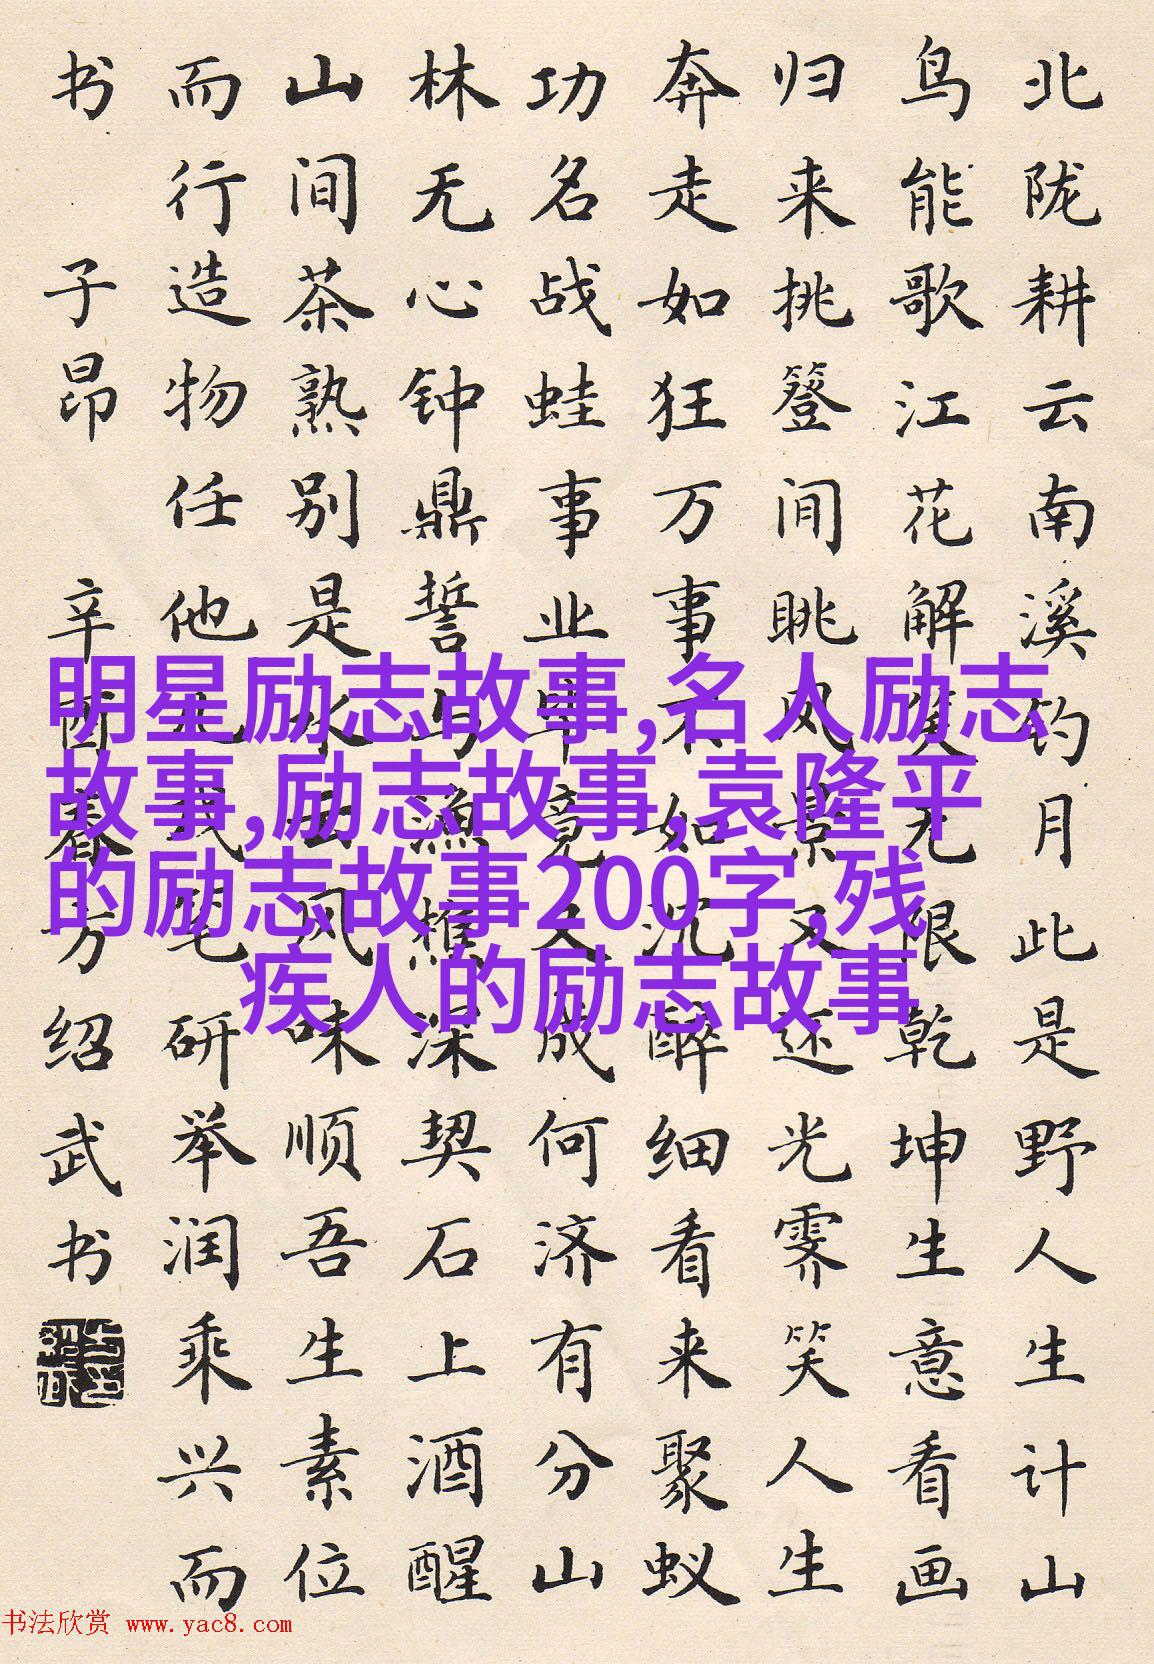 北陇耕云南溪钓月此是野人生计山
鸟能歌江花解笑无限乾坤生意看画
归来挑簦间眺风景又还光霁笑人生
奔走如狂万事不如沉醉细看来聚蚁
功名战蛙事业毕竟又成何济有分山
林无心钟鼎誓与渔樵深契石上酒醒
山间茶熟别是水云风味顺吾生素位
而行造物任他我笔研举润乘兴而
书 子昂 辛酉春方绍武书
明星励志故事,名人励志
故事,励志故事,袁隆平
的励志故事200字,残
疾人的励志故事
书法欣赏 www.yac8.com